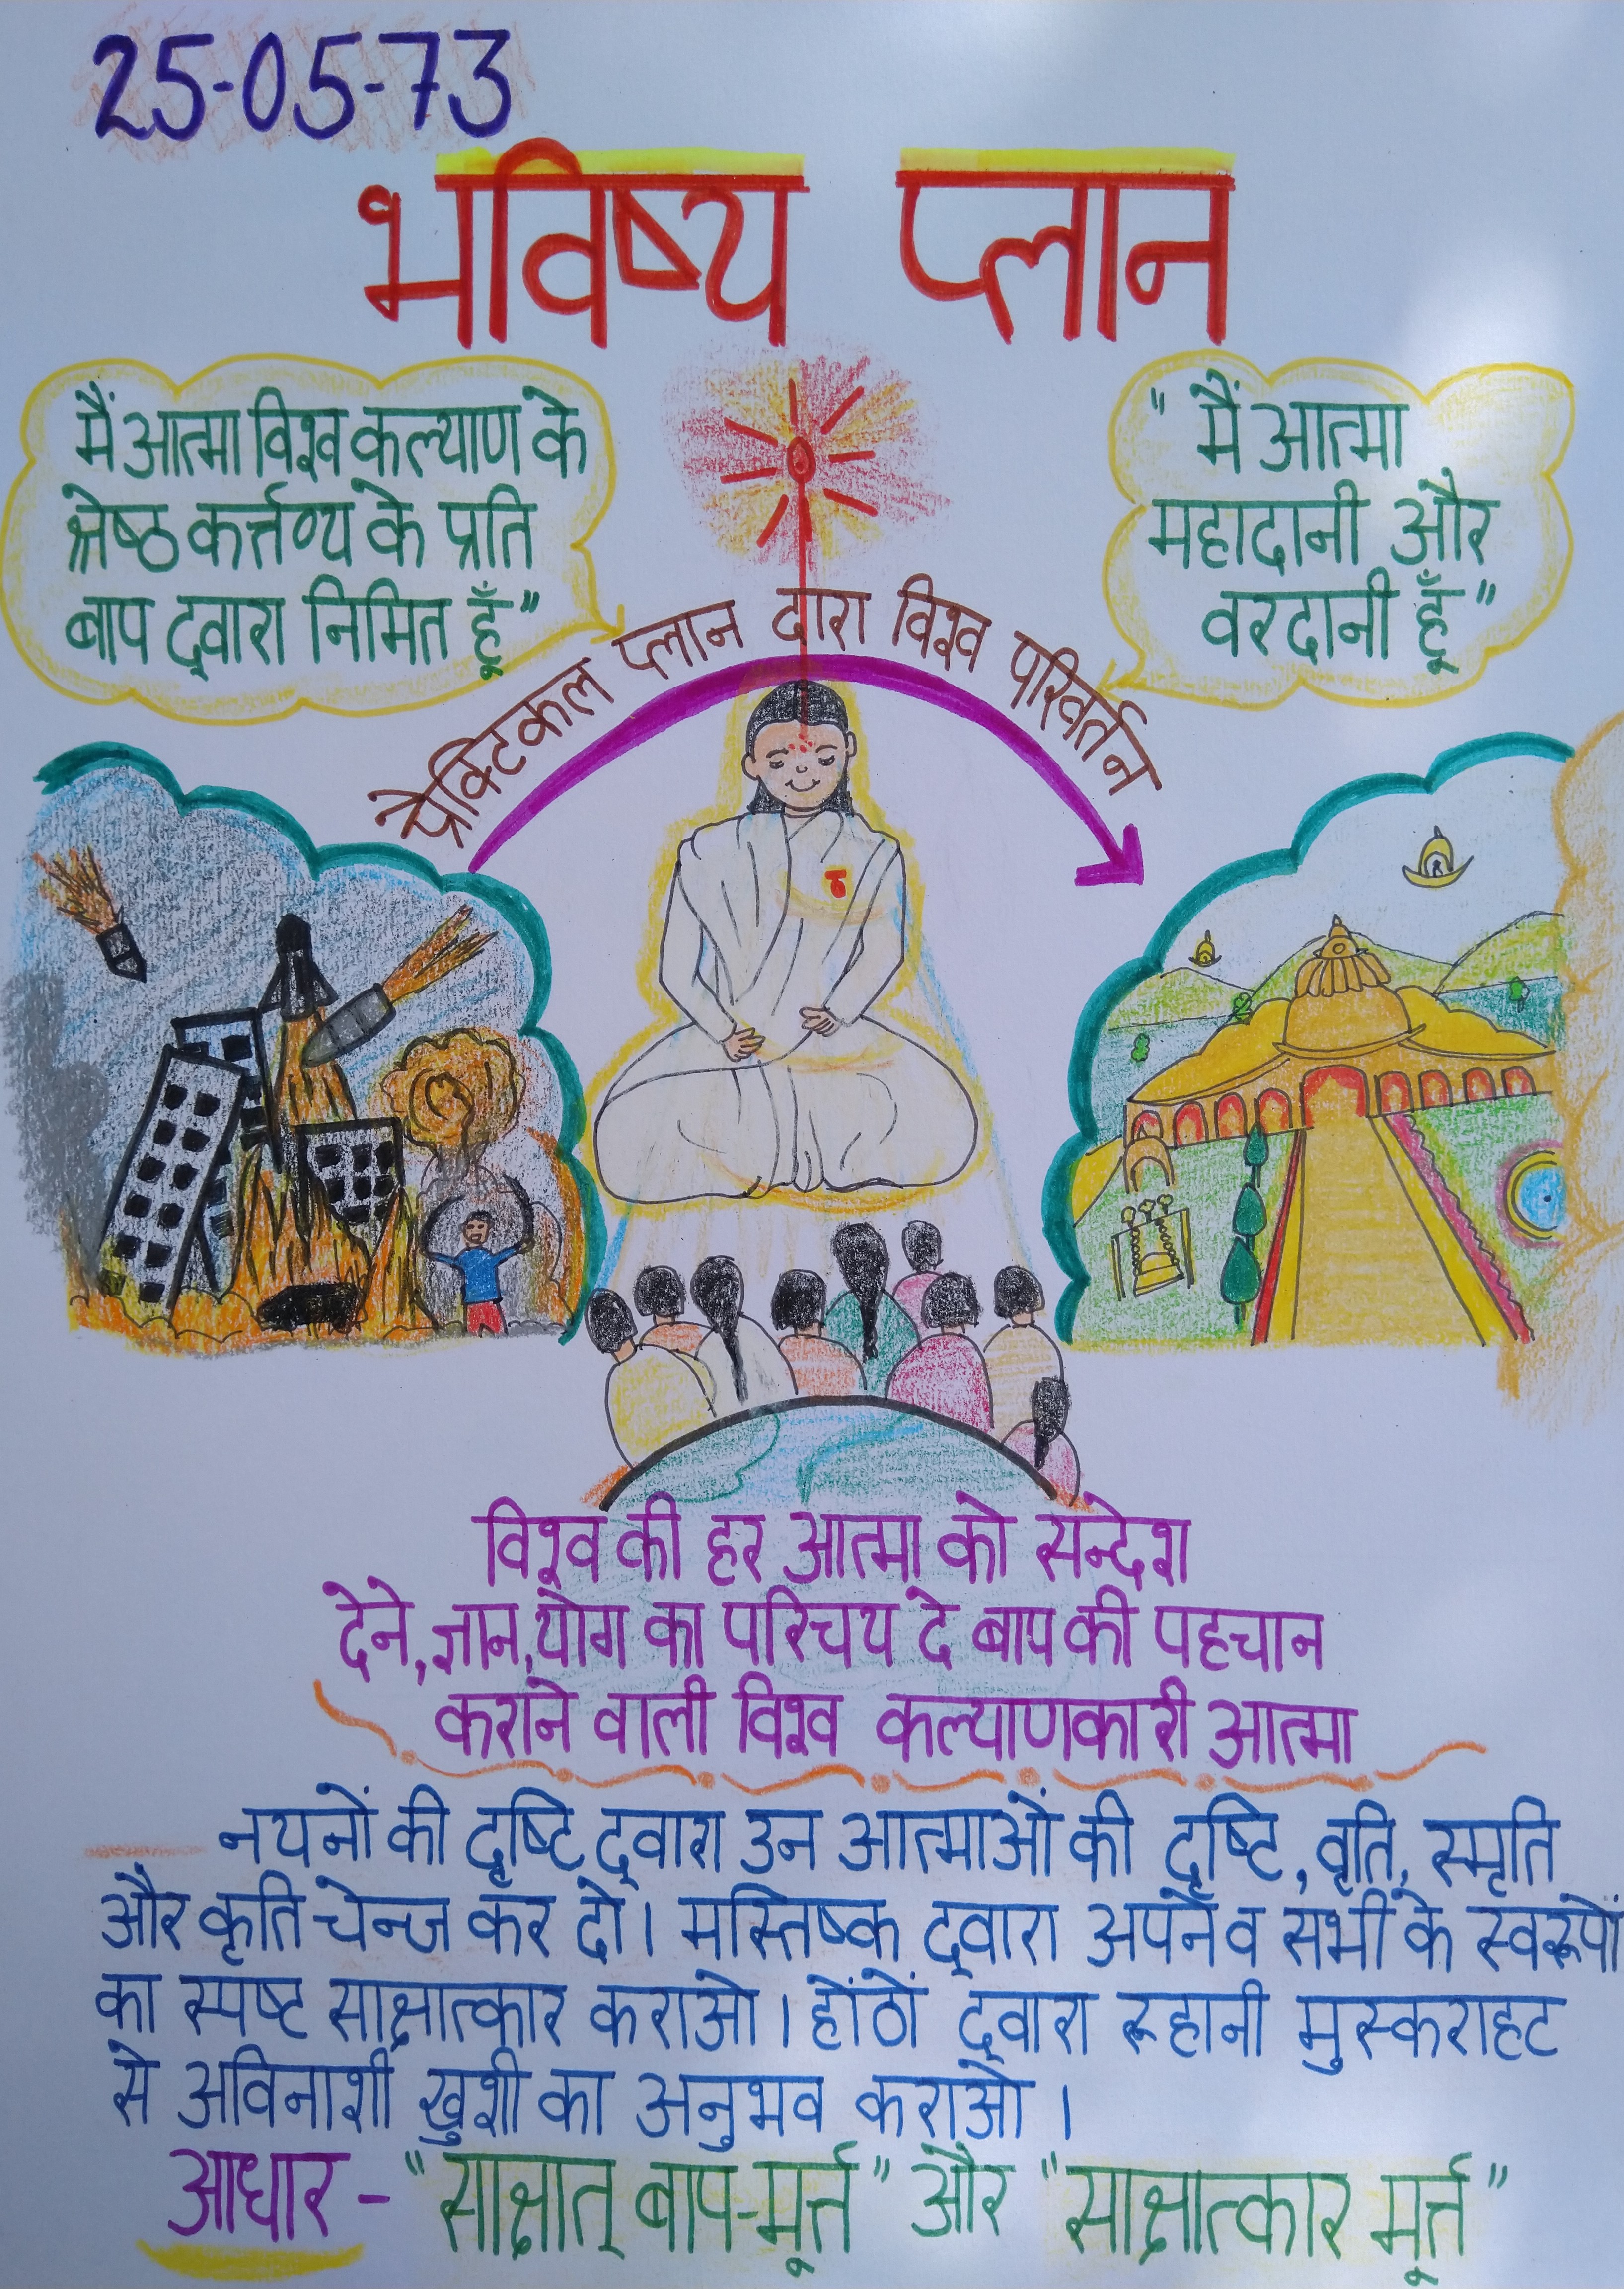 25-05-73
भविष्य प्लान
मैं आत्मा विश्व कल्याण के
श्रेष्ठ कर्त्तव्य के प्रति
बाप द्वारा निमित हूँ"
"मैं आत्मा
महादानी और
वरदानी हूँ"
प्रैक्टिकल प्लान द्वारा विश्व परिवर्तन
विश्व की हर आत्मा को सन्देश
देने, ज्ञान, योग का परिचय दे बाप की पहचान
कराने वाली विश्व कल्याणकारी आत्मा
नयनों की दृष्टि द्वारा उन आत्माओं की दृष्टि, वृति, स्मृति
और कृति चेन्ज कर दो। मस्तिष्क द्वारा अपने व सभी के स्वरूपों
का स्पष्ट साक्षात्कार कराओ। होंठों द्वारा रूहानी मुस्कराहट
से अविनाशी खुशी का अनुभव कराओ।
आधार - "साक्षात् बाप-मूर्त" और "साक्षात्कार मूर्त"